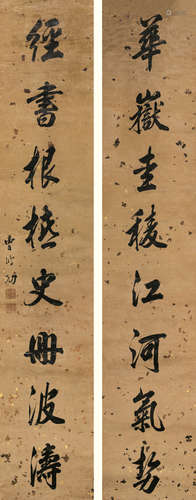 華嶽圭稜江河氣勢
經書根柢史冊波濤
曹秀先